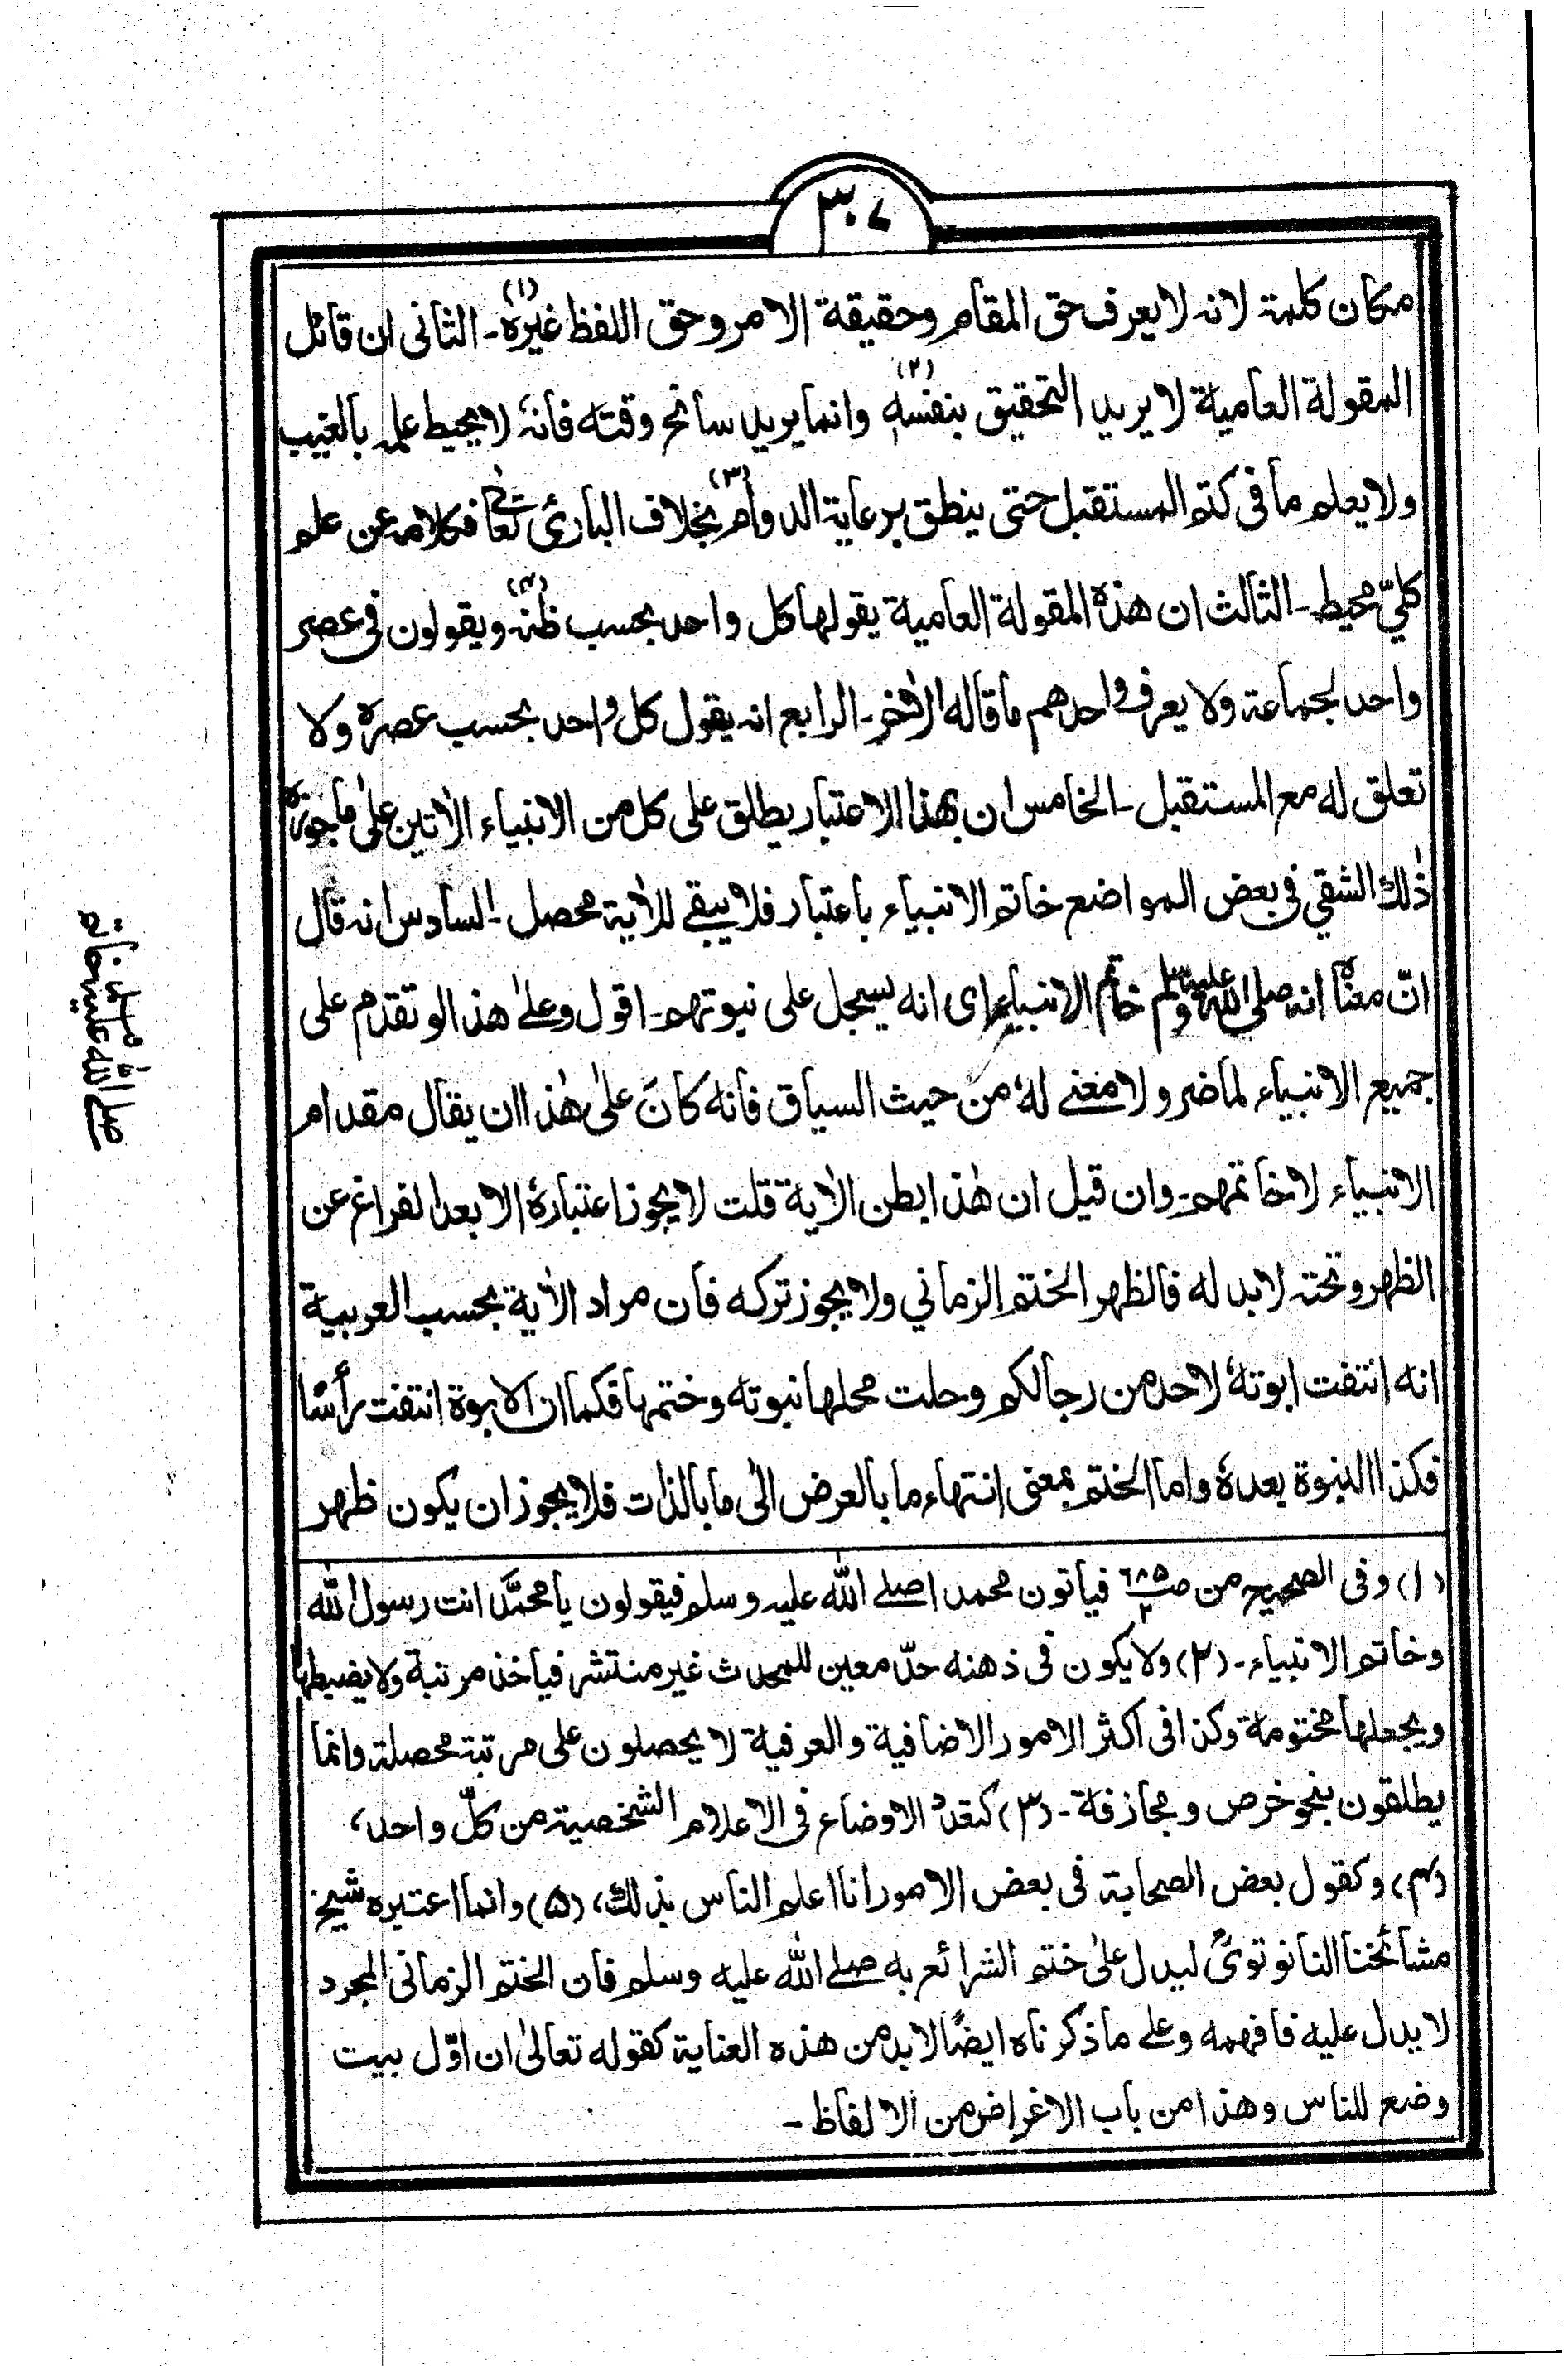 ٣٠٧
مكان كلمة لانه لا يعرف حق المقام وحقيقة الامر وحق اللفظ غيره (١) ـ الثانى ان قائل
المقولة العامية لا يريد التحقيق بنفسه (٢) وانما يريد سانح وقته فانهٗ لا يحيط علمه بالغيب
ولا يعلم ما فى كتم المستقبل حتى ينطق برعاية الدوام (٣) بخلاف البارئ تعالىٰ فكلامه عن علم
كليّ محيط ـ الثالث ان هذه المقولة العامية يقولها كل واحد بحسب ظنه (٤) ويقولون فى عصر
واحد لجماعة ولا يعرف واحدهم ما قاله الاٰخر ـ الرابع انه يقول كل واحد بحسب عصره ولا
تعلق له مع المستقبل ـ الخامس ان بهذا الاعتبار يطلق على كل من الانبياء الاٰتين علىٰ ما جوزه
ذٰلك الشقي فى بعض المواضع خاتم الانبياء باعتبار فلا يبقے للاٰية محصل ـ السادس انه قال
انّ معناه انه صلى الله عليه وسلم خاتم الانبياء اى انه يسجل على نبوتهم ـ اقول وعلىٰ هذا لو تقدم على
جميع الانبياء لما ضر ولا معنے لهٗ من حيث السياق فانه كانَ علىٰ هٰذا ان يقال مقدام
الانبياء لا خاتمهم ـ وان قيل ان هٰذا بطن الاٰية قلت لا يجوز اعتبارهٗ الا بعد الفراغ عن
الظهر وتحته لا بد له فالظهر الختم الزماني ولا يجوز تركه فان مراد الاٰية بحسب العربية
انه انتفت ابوتهٗ لاحد من رجالكم وحلت محلها نبوته وختمها فكما ان الابوة انتفت رأسًا
فكذا النبوة بعدهٗ واما الختم بمعنى انتهاء ما بالعرض الىٰ ما بالذات فلا يجوز ان يكون ظهر
(١) وفى الصحيح من صـ٦٨٥/٢ فياتون محمدا صلے اللّٰه عليه وسلم فيقولون يا محمَّد انت رسول اللّٰه
وخاتم الانبياء ـ (٢) ولا يكون فى ذهنه حدّ معين للمحدث غير منتشر فياخذ مرتبة ولا يضبطها
ويجعلها مختومة وكذا فى اكثر الامور الاضافية والعرفية لا يحصلون على مرتبة محصلة وانما
يطلقون بنحو خرص ومجازفة ـ (٣) كتعدد الاوضاع فى الاعلام الشخصية من كلّ واحد،
(٤) وكقول بعض الصحابة فى بعض الامور انا اعلم الناس بذلك، (۵) وانما اعتبره شيخ
مشائخنا النانوتوىؒ ليدل علىٰ ختم الشرائع به صلے اللّٰه عليه وسلم فان الختم الزمانى المجرد
لا يدل عليه فافهمه وعلے ما ذكرناه ايضًا لا بد من هذه العناية كقوله تعالىٰ ان اوّل بيت
وضع للناس وهذا من باب الاغراض من الالفاظ ـ